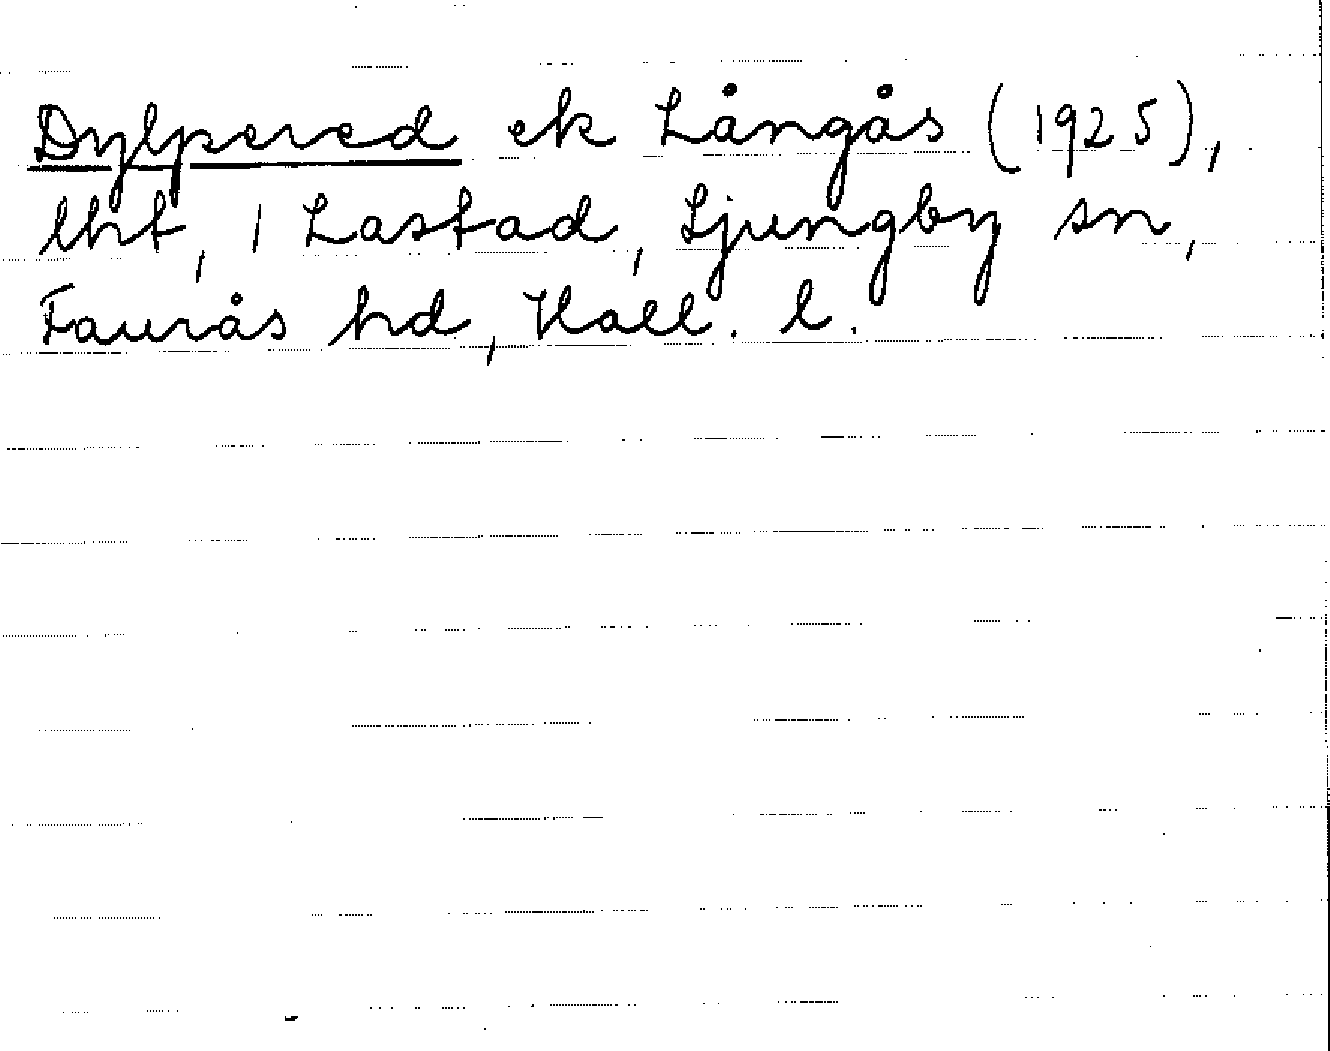 Dylpered ek Långås (1925),
lht, 1 Lastad, Ljungby sn,
Faurås hd, Hall. l.